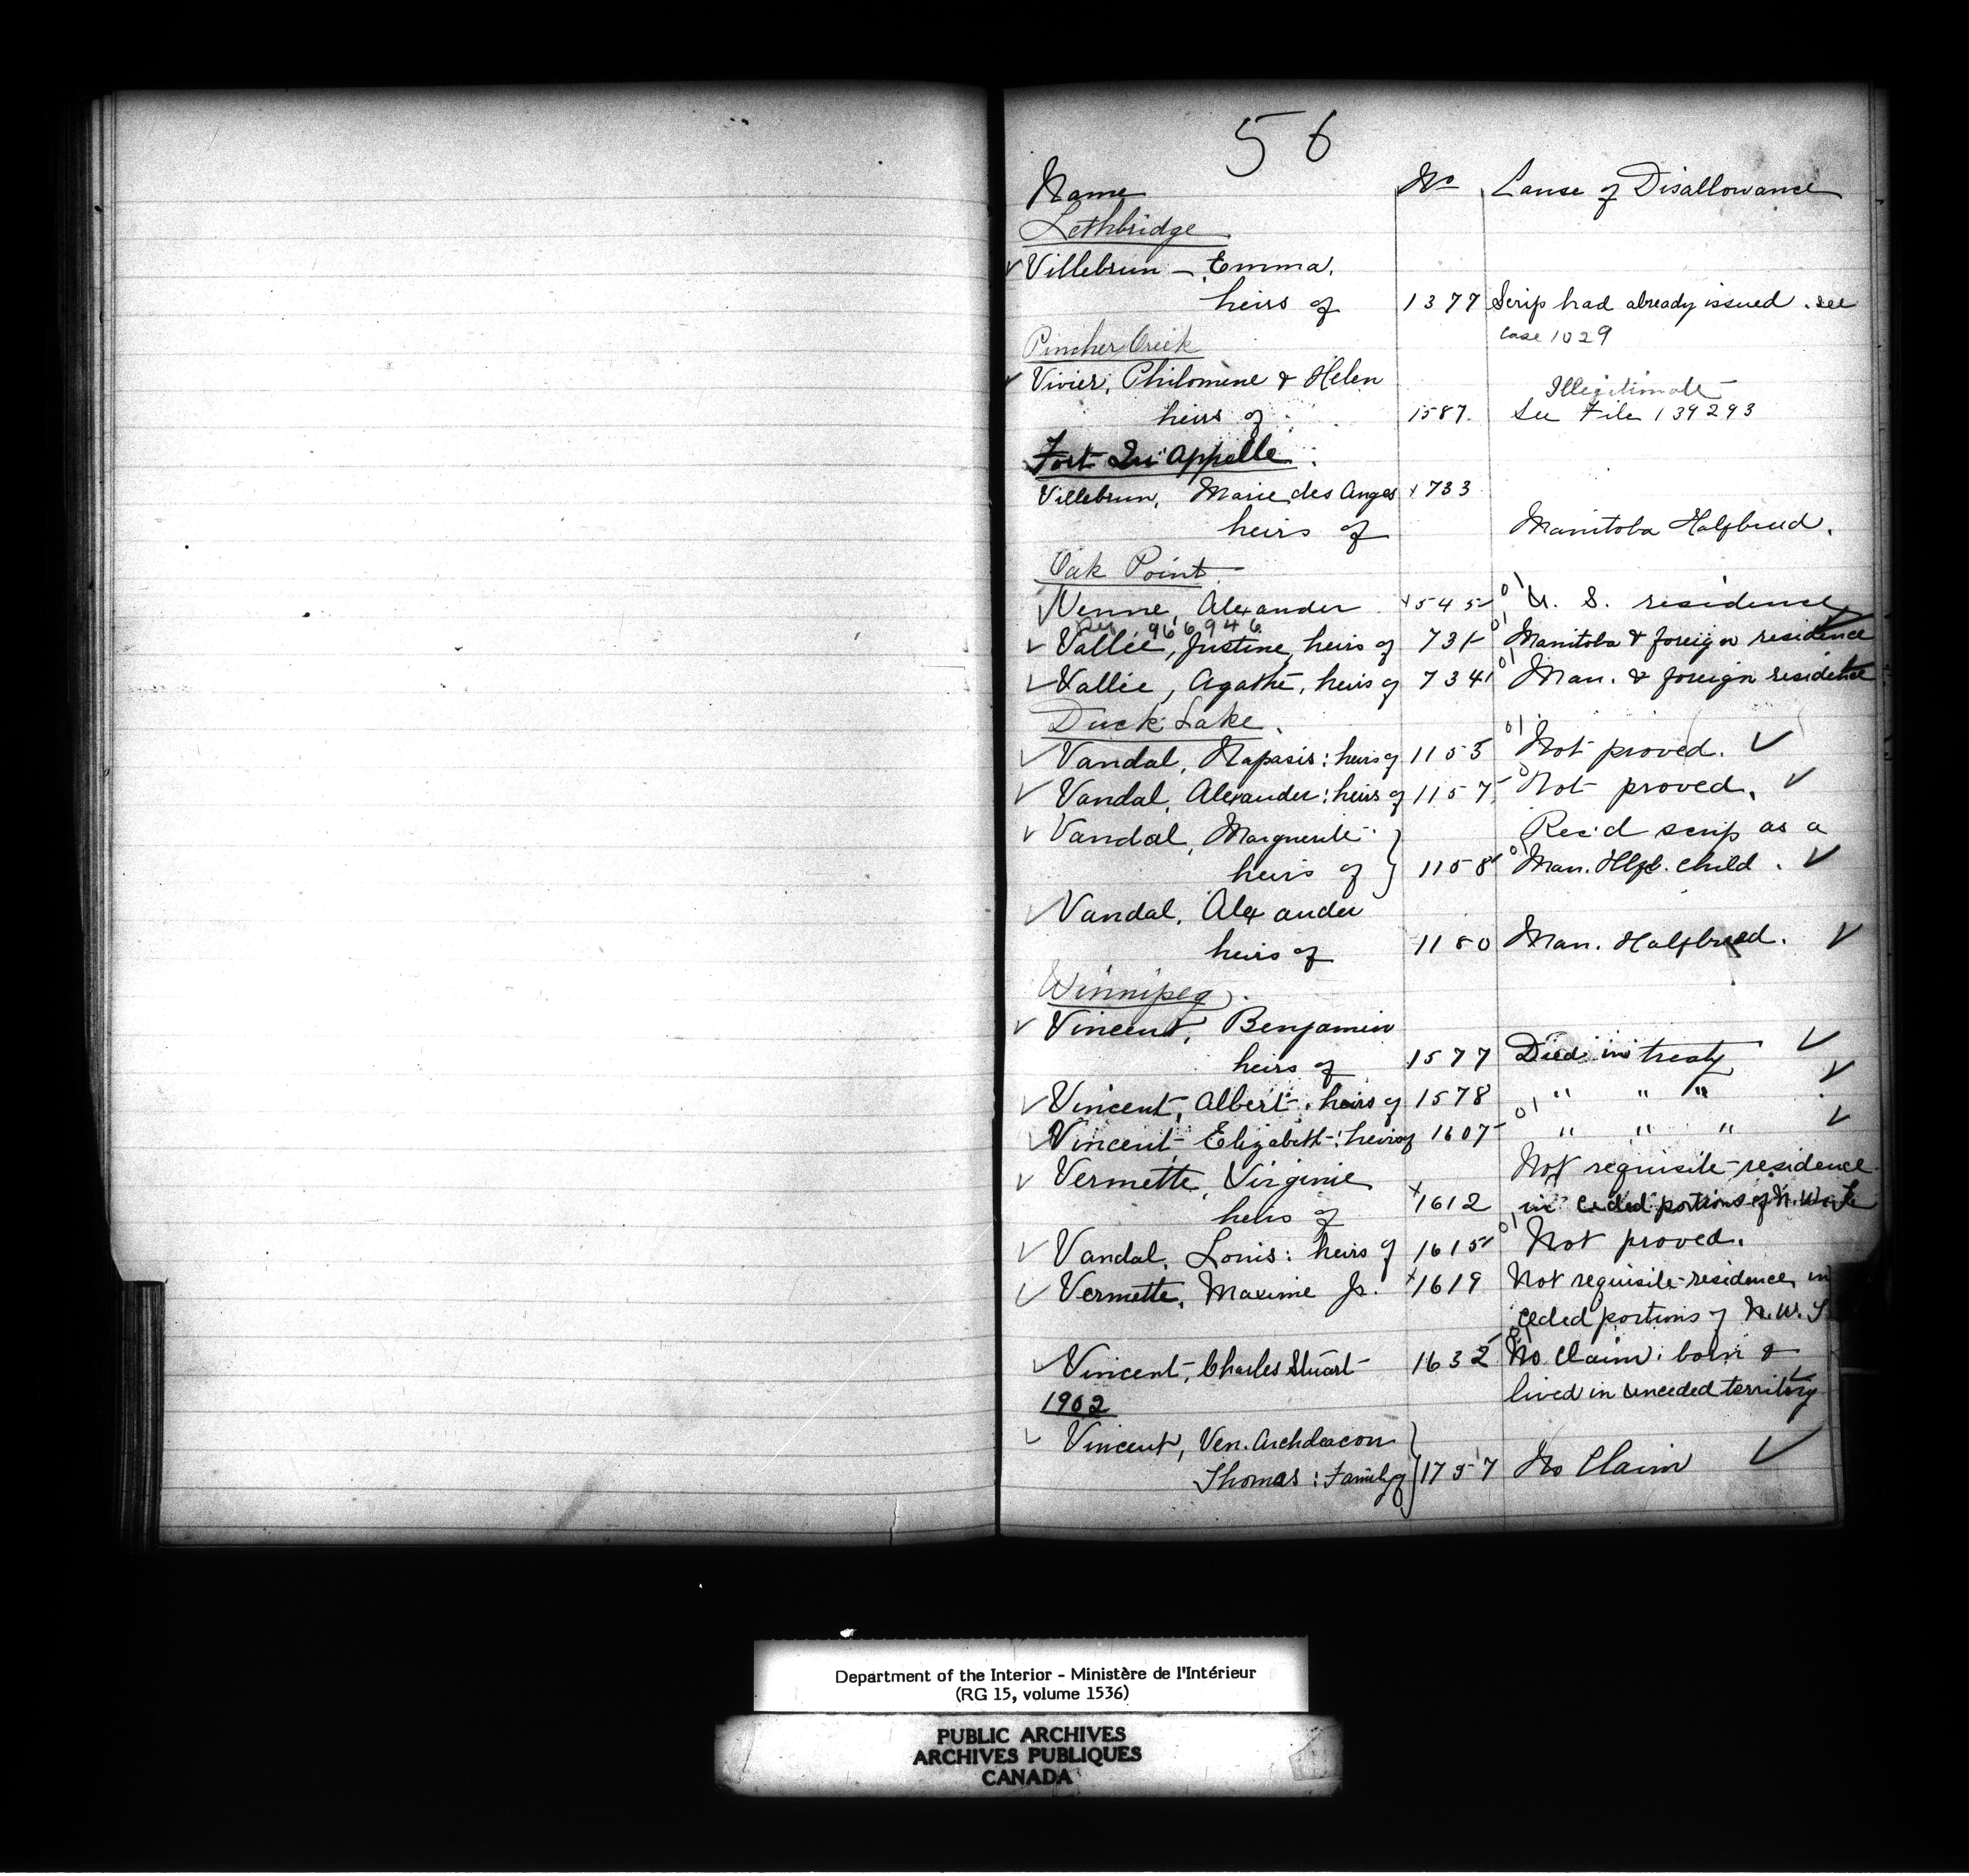 56
Name No Cause of Disallowance
Lethbridge
Villebrun - Emma,
heirs of 1377 Scrip had already issued. see
case 1029
Pincher Creek
Vivier, Philomene & Helen Illegitimate
heirs of 1587. See File 139293
Fort Qu'Appelle
Villebrun, Marie des Anges 733
heirs of Manitoba Halfbreed.
Oak Point
Venne, Alexander 545 U. S. residence
966946
Vallée, Justine, heirs of 731 Manitoba & foreign residence
Vallée, Agathe, heirs of 734 Man. & foreign residence
Duck Lake.
Vandal, Napasis: heirs of 1155 Not proved.
Vandal, Alexander: heirs of 1157 Not proved.
Vandal, Marguerite Rec'd scrip as a
heirs of 1158 Man. Hlfb. child.
Vandal, Alexander
heirs of 1180 Man. Halfbreed.
Winnipeg.
Vincent, Benjamin
heirs of 1577 Died in treaty
Vincent, Albert. heirs of 1578 " " "
Vincent Elizabeth: heirs of 1607 " " "
Vermette, Virginie Not requisite residence
heirs of 1612 in ceded portions of N.W.T.
Vandal, Louis: heirs of 1615 Not proved.
Vermette, Maxime Jr. 1619 Not requisite residence in
ceded portions of N.W.T
Vincent, Charles Stuart 1632 No claim: born &
1902 lived in unceded territory
Vincent, Ven. Archdeacon
Thomas: Family of 1757 No Claim
Department of the Interior - Ministère de l'Intérieur
(RG 15, volume 1536)
PUBLIC ARCHIVES
ARCHIVES PUBLIQUES
CANADA